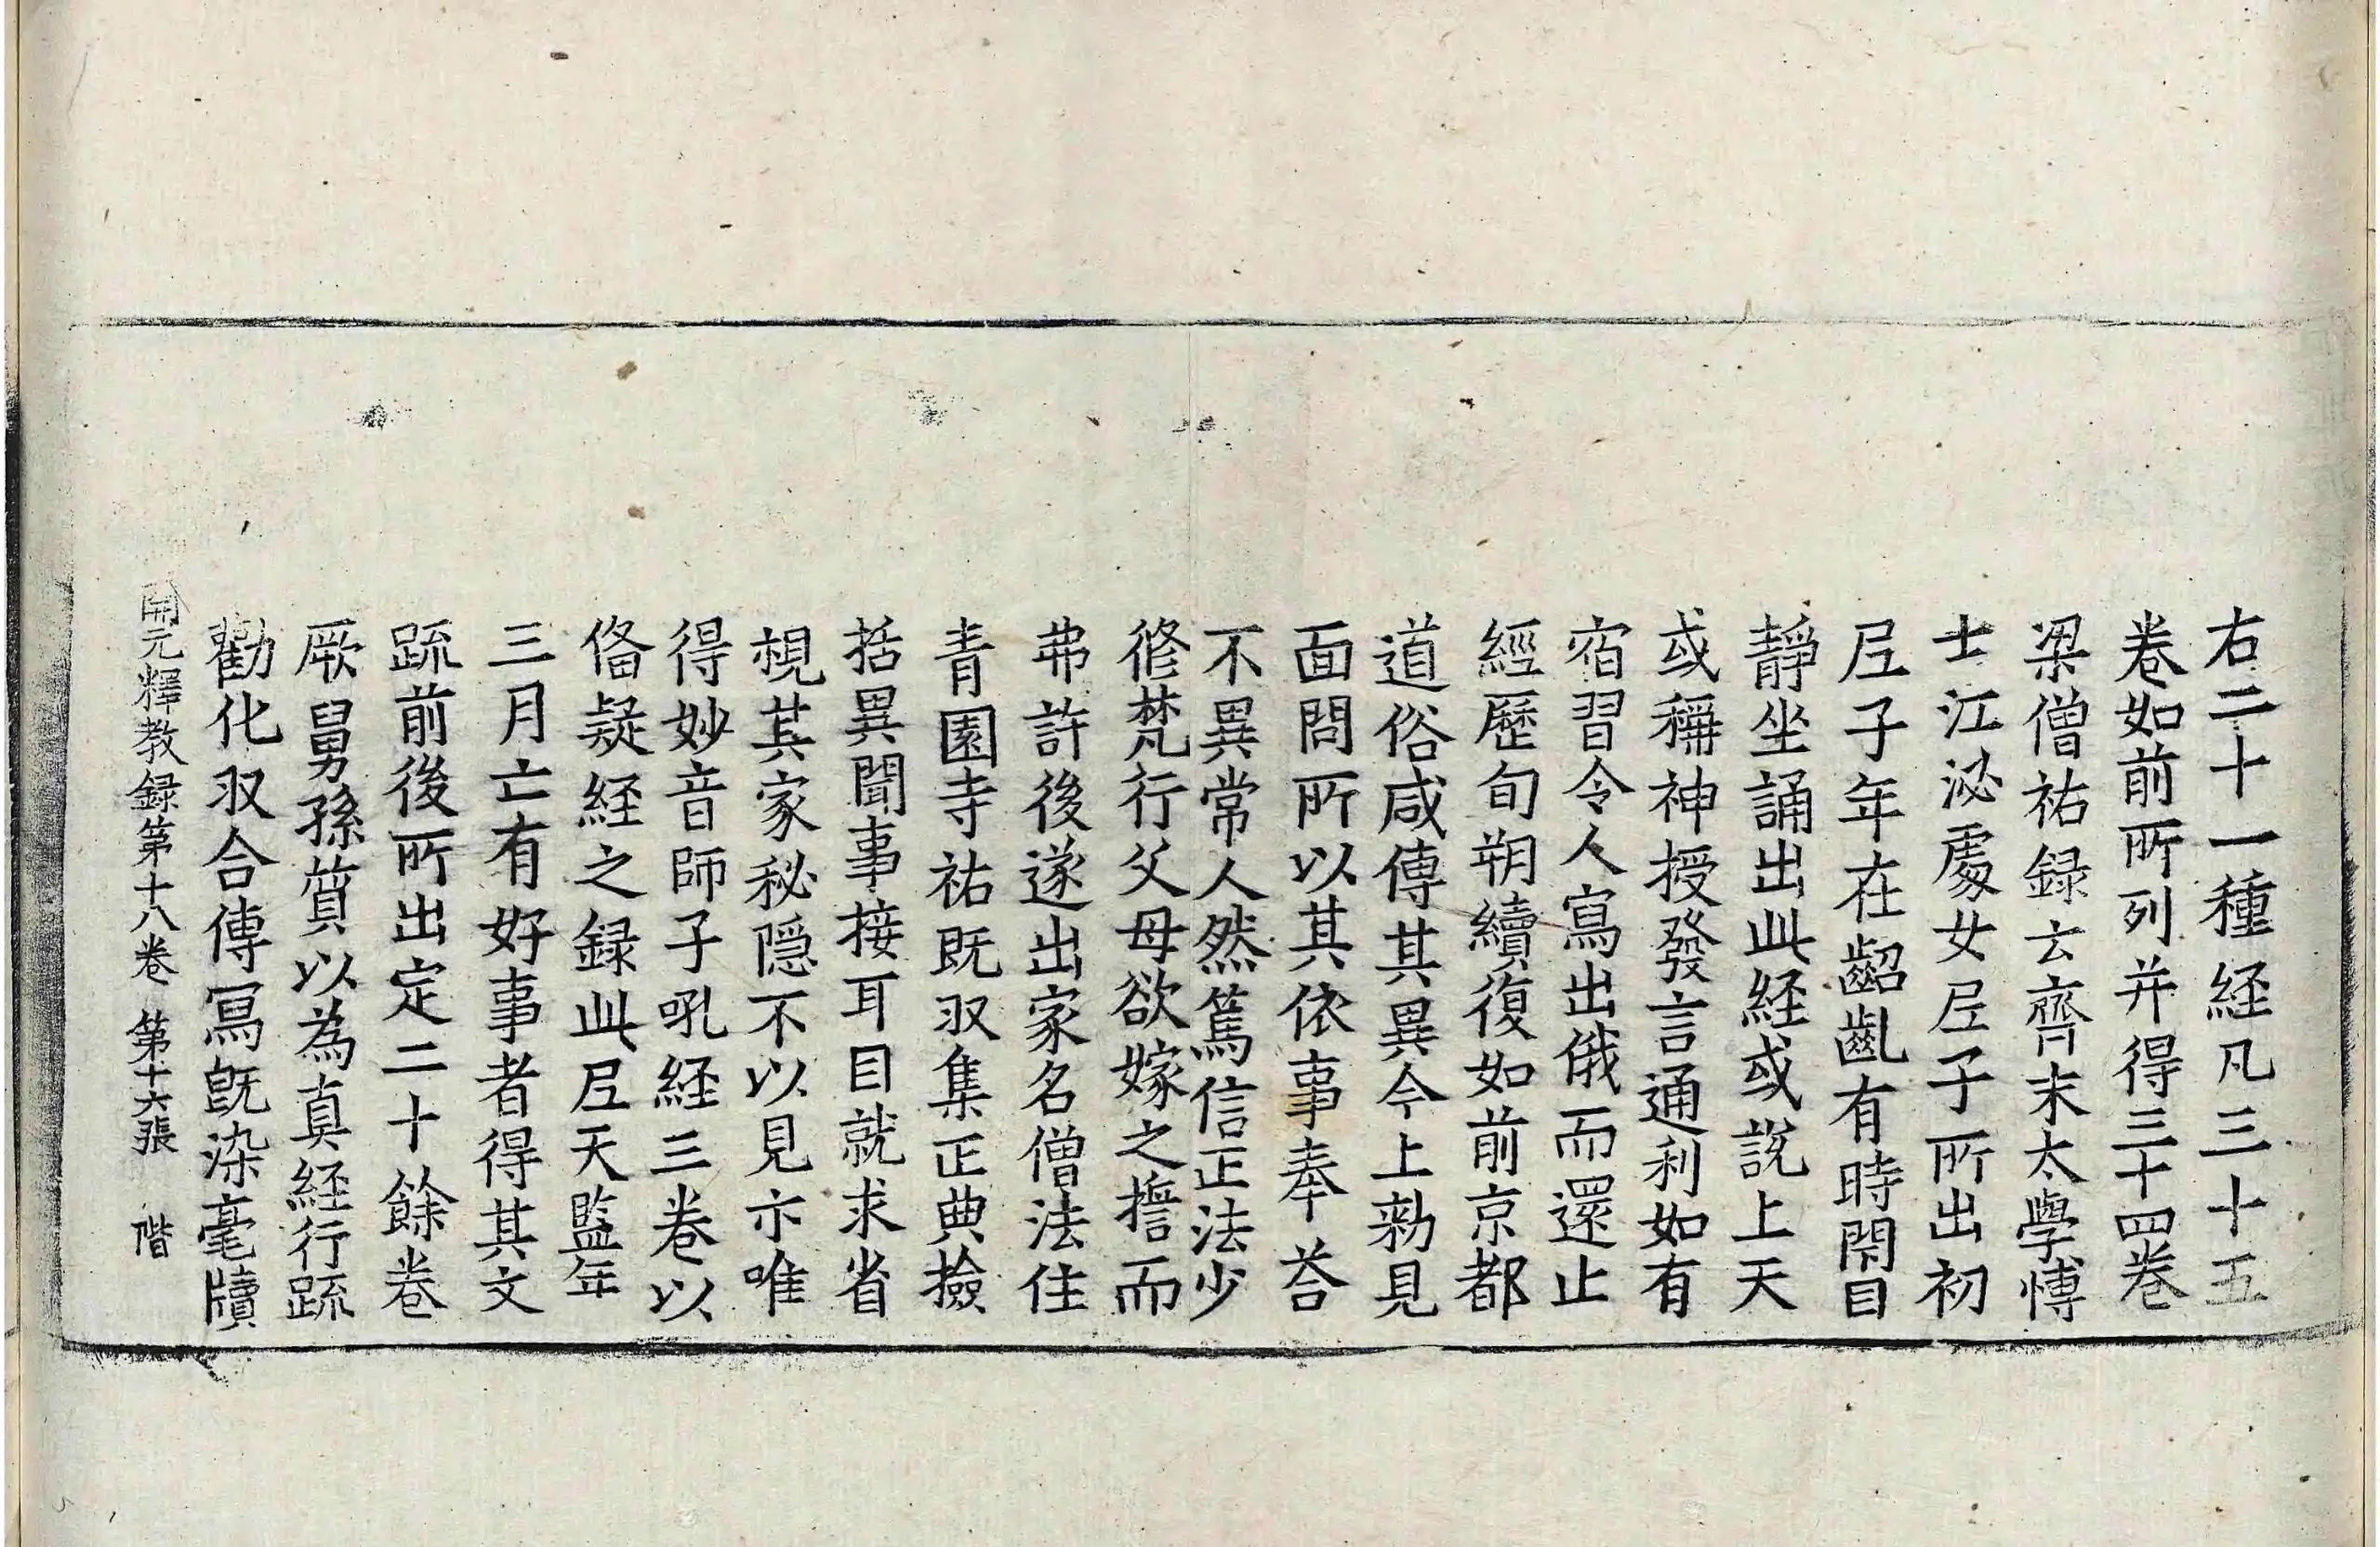 右二十一種経凡三十五
卷如前所列并得三十四卷
梁僧祐録云齊末太學愽
士江泌處女尼子所出初
尼子年在齠齓有時閇目
靜坐誦出此経或說上天
或稱神授發言通利如有
宿習令人寫出俄而還止
經歷旬朔續復如前京都
道俗咸傳其異今上勑見
面問所以其依事奉荅
不異常人然篤信正法少
修梵行父母欲嫁之擔而
弗許後遂出家名僧法住
青園寺祐既収集正典撿
括異聞事接耳目就求省
視其家秘隠不以見亦唯
得妙音師子吼経三卷以
俻疑経之録此尼天監年
三月亡有好事者得其文
䟽前後所出定二十餘卷
厥舅孫質以為真経行䟽
勸化収合傳冩既染毫牘
開元釋教録第十八卷 第十六張 階